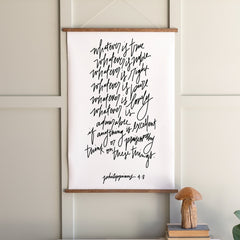 whatever is true
whatever is noble
whatever is right
whatever is pure
whatever is lovely
whatever is
admirable
if anything is excellent
or praiseworthy
think on these things
philippians 4:8